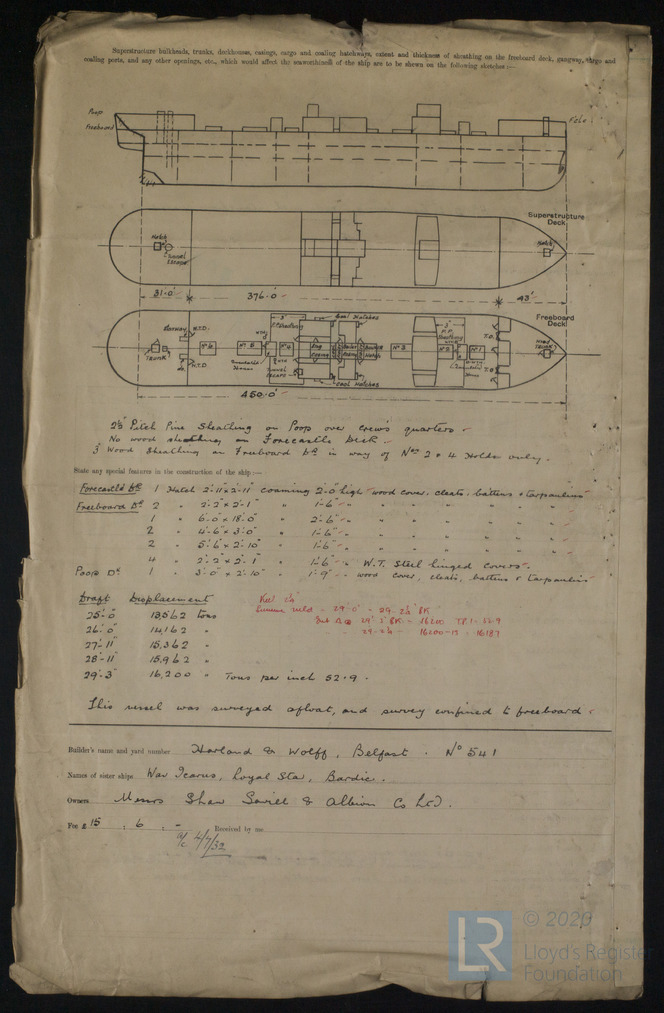 Superstructure bulkheads, trunks, deckhouses, casings, cargo and coaling hatchways, extent and thickness of sheathing on the freeboard deck, gangway, cargo and
coaling ports, and any other openings, etc., which would affect the seaworthiness of the ship are to be shewn on the following sketches :—
Poop
Freeboard
F'cle
Superstructure
Deck
Hatch
Tunnel
Escape
Hatch
31'·0"
376'·0"
43'
Freeboard
Deck
Coal Hatches
W.T.D.
Trunk
W.T.D.
Nº 6
Nº 5
Nº 4
Nº 3
Nº 2
Nº 1
Tunnel
Escape
Coal Hatches
450'·0"
2½" Pitch Pine Sheathing on Poop over crew's quarters
No wood sheathing on Forecastle Deck
3" Wood Sheathing on Freeboard Dk in way of Nos 2 & 4 Holds only.
State any special features in the construction of the ship :—
Forecastle Dk 1 Hatch 2'·11" x 2'·11" coaming 2'·0" high wood cover, cleats, battens & tarpaulins
Freeboard Dk 2 " 2'·2" x 2'·1" " 1'·6" " " " " "
1 " 6'·0" x 18'·0" " 2'·6" " " " " "
2 " 4'·6" x 3'·0" " 1'·6" " " " " "
2 " 5'·6" x 2'·10" " 1'·6" " " " " "
4 " 2'·2" x 2'·1" " 1'·6" " W.T. Steel hinged covers
Poop Dk 1 " 3'·0" x 2'·10" " 1'·9" " wood cover, cleats, battens & tarpaulins
Draft Displacement
25'·0" 13,562 tons
26'·0" 14,162 "
27'·11" 15,362 "
28'·11" 15,962 "
29'·3" 16,200 " Tons per inch 52.9.
Keel 2½"
Summer mld = 29'-0" = 29'-2½" BK
29'·3" BK = 16200 TPI = 52.9
29'-2½" 16200-13 = 16187
This vessel was surveyed afloat, and survey confined to freeboard
Builder's name and yard number Harland & Wolff, Belfast. Nº 541
Names of sister ships War Icarus, Royal Star, Bardic.
Owners Messrs Shaw Savill & Albion Co Ltd.
Fee £ 15 : 6 : - Received by me
a/c 4/7/32
LR
© 2020
Lloyd's Register
Foundation